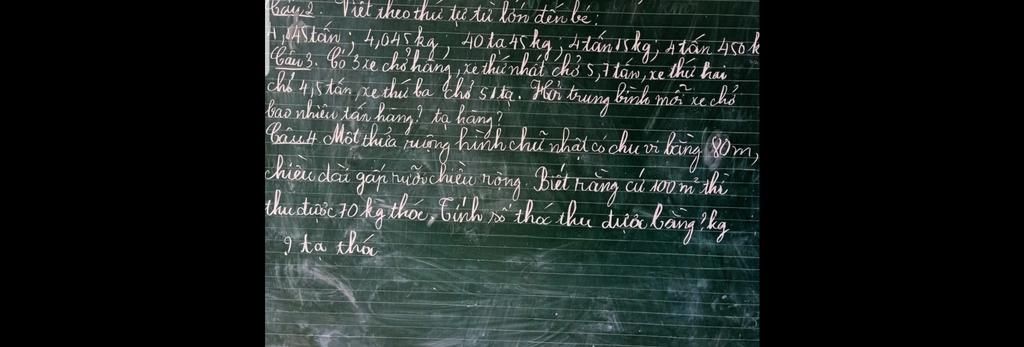 Câu 2. Viết theo thứ tự từ lớn đến bé:
4,045 tấn; 4,045 kg; 40 tạ 45 kg; 4 tấn 15 kg; 4 tấn 450 k
Câu 3. Có 3 xe chở hàng, xe thứ nhất chở 5,7 tấn, xe thứ hai
chở 4,5 tấn, xe thứ ba chở 51 tạ. Hỏi trung bình mỗi xe chở
bao nhiêu tấn hàng? tạ hàng?
Câu 4 Một thửa ruộng hình chữ nhật có chu vi bằng 80m,
chiều dài gấp rưỡi chiều rộng. Biết rằng cứ 100 m² thì
thu được 70 kg thóc. Tính số thóc thu được bằng ? kg
? tạ thóc